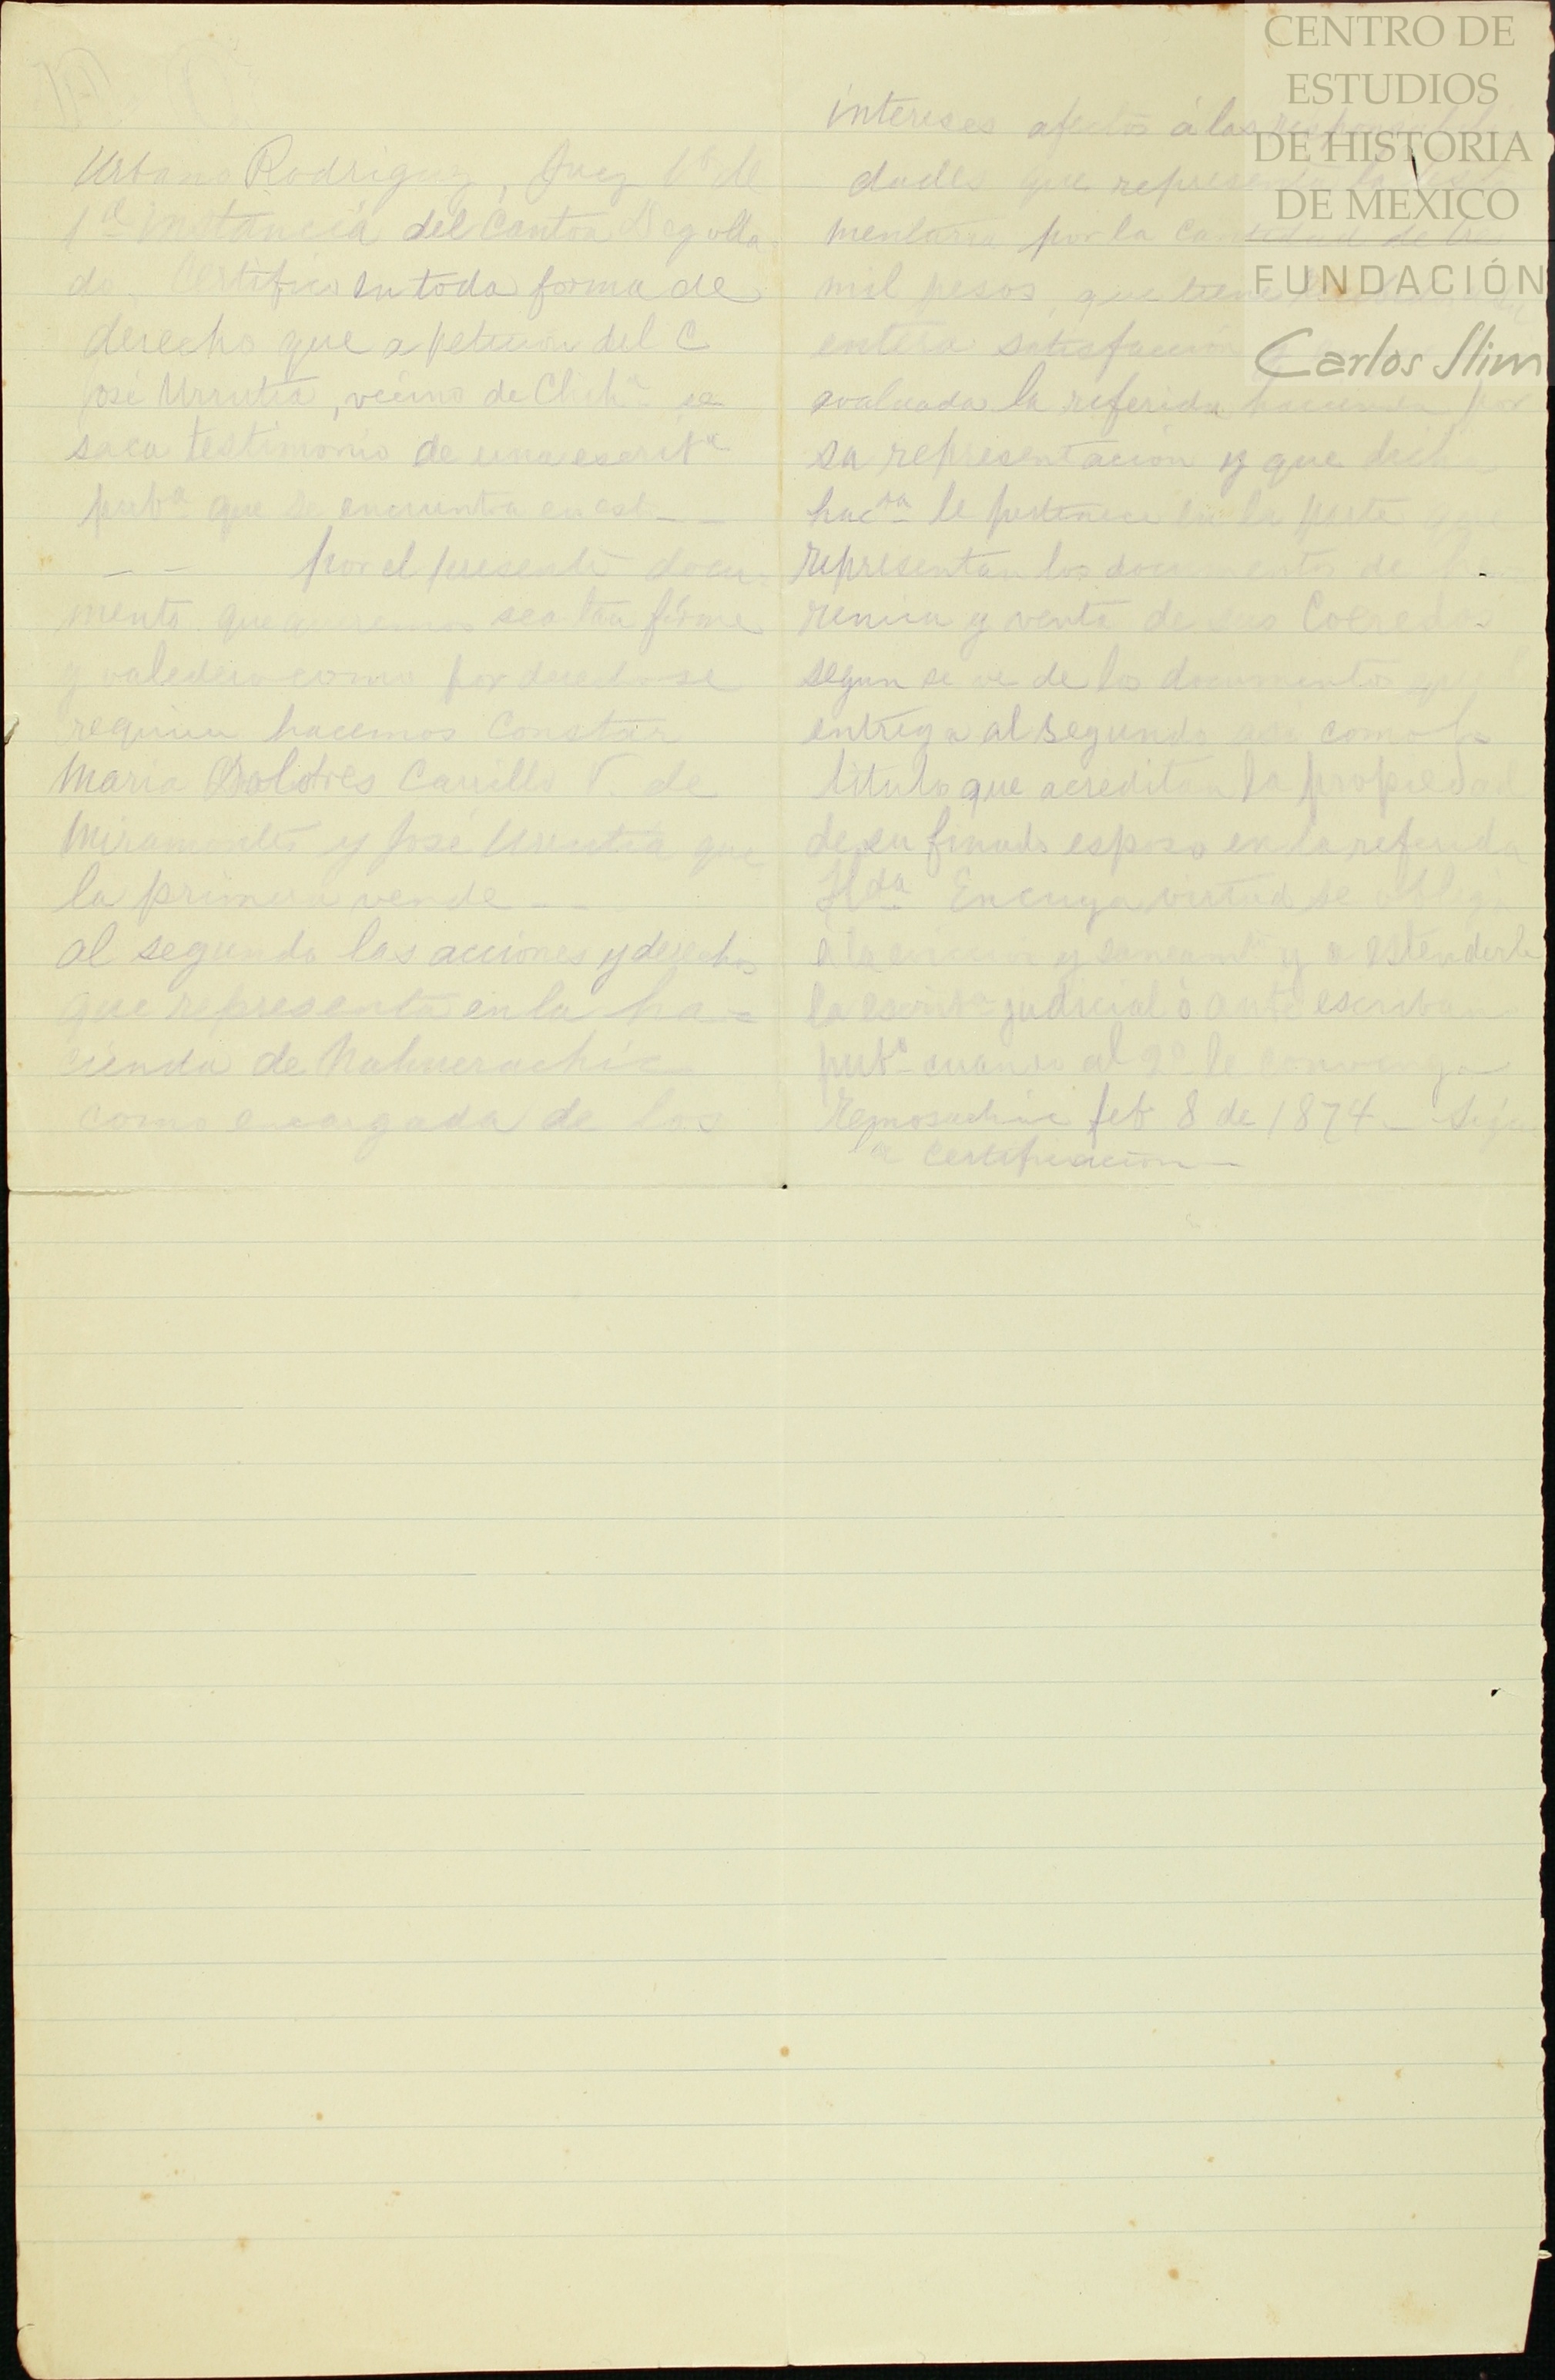 Urbano Rodriguez, Juez 1º de
1ª instancia del Canton Degolla-
do, Certifico en toda forma de
derecho que a peticion del C
José Urrutia, vecino de Chihª se
saca testimonio de una escritª
pubª que se encuentra en est - -
- - por el presente docu-
mento que queremos sea tan firme
y valedero como por derecho se
requiere hacemos constar
Maria Dolores Carrillo V. de
Miramontes y José Urrutia que
la primera vende - -
al segundo las acciones y derechos
que representa en la ha-
cienda de Nahuerachic
como encargada de los
intereses afectos á las responsabili
dades que representa la testa
mentaria por la cantidad de tres
mil pesos, que tiene
entera satisfaccion
evaluada la referida hacienda por
su representacion y que dicha
hacda le pertenece en la parte que
representan los documentos de he
rencia y venta de sus Coeredos
segun se ve de los documentos que
entrega al segundo asi como los
titulo que acreditan la propiedad
de su finado esposo en la referida
Hda En cuya virtud se obliga
a la eviccion y saneamto y a estenderle
la escritª judicial ó ante escribano
pubº cuando al 2º le convenga
Temosachic feb 8 de 1874 - Sigue
la certificacion -
CENTRO DE
ESTUDIOS
DE HISTORIA
DE MEXICO
FUNDACIÓN
Carlos Slim